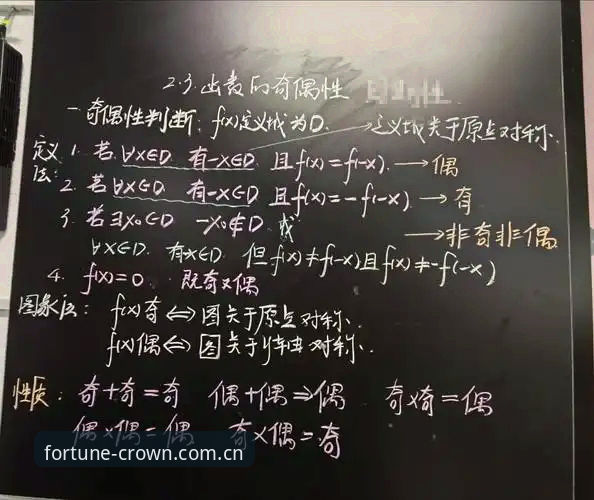 2.3 函数的奇偶性
一. 奇偶性判断: f(x)定义域为D. →定义域关于原点对称.
定义法: 1. 若∀x∈D 有-x∈D 且f(x)=f(-x). →偶
2. 若∀x∈D 有-x∈D 且f(x)=-f(-x) →奇
3. 若∃x₀∈D -x₀∉D 或 →非奇非偶
∀x∈D. 有-x∈D 但f(x)≠f(-x)且f(x)≠-f(-x)
4. f(x)=0 既奇又偶
图象法: f(x)奇⇔图关于原点对称.
f(x)偶⇔图关于y轴对称.
性质: 奇+奇=奇 偶+偶⇒偶 奇×奇=偶
偶×偶=偶 奇×偶=奇
fortune-crown.com.cn